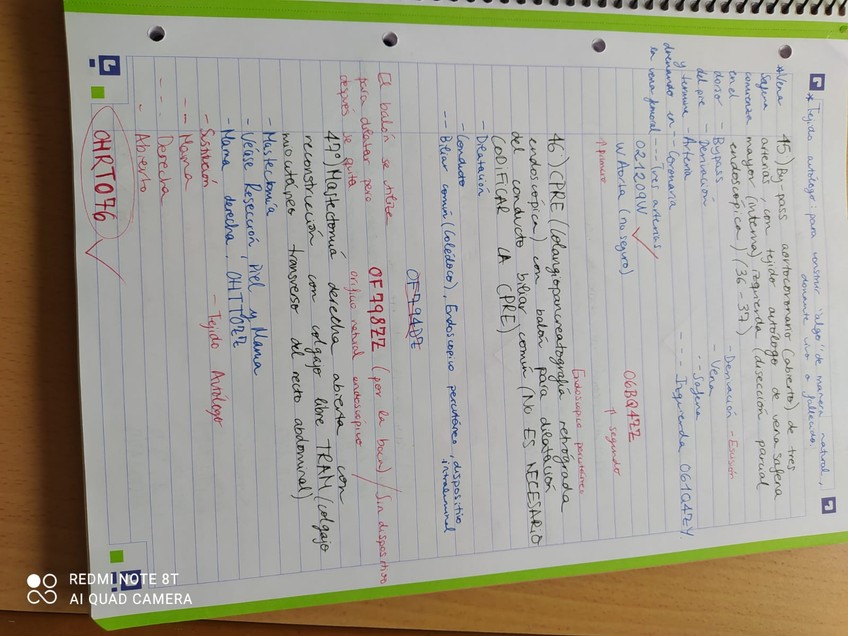 * Tejido autólogo: para construir "algo" de manera natural,
donante vivo o fallecido.
45) By-pass aortocoronario (abierto) de tres
arterias, con tejido autólogo de vena safena
mayor (interna) izquierda (disección parcial
endoscópica) (36-37)
* Vena
Safena
comienza
en el
dorso
del pie
y termina
drenando en
la vena femoral
- Bypass
- Derivación
- Arteria
-- Coronaria
--- Tres arterias
021209W ✓
W Aorta (no seguro)
↑ primero
- Derivación - Escisión
- Vena
Safena
--- Izquierda 061Q4ZY.
06BQ4ZZ
↑ segundo
Endoscópico percutáneo
46) CPRE (Colangiopancreatografía retrograda
endoscópica) con balón para dilatación
del conducto biliar común (NO ES NECESARIO
CODIFICAR LA CPRE)
- Dilatación
- Conducto
-- Biliar común (Colédoco), Endoscópico percutáneo, dispositivo
intraluminal
0F794DZ
El balón se utiliza
para dilatar pero
después se quita
0F798ZZ (por la boca) / Sin dispositivo
orificio natural endoscópico
47º) Mastectomía derecha abierta con
reconstrucción con colgajo libre TRAM (colgajo
miocutáneo transverso del recto abdominal)
- Mastectomía
- Véase Resección, Piel y Mama
- Mama derecha. 0HTT0ZZ
- Sustitución - Tejido Autólogo
-- Mama
--- Derecha
- Abierto
0HRT076 ✓
REDMI NOTE 8T
AI QUAD CAMERA